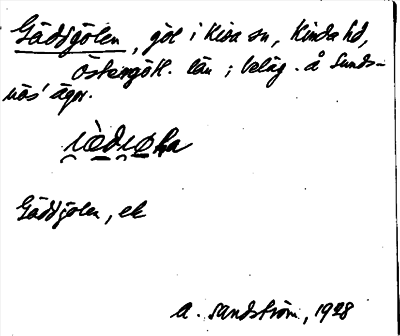 Gäddgölen, göl i Kisa sn, Kinda hd,
Östergötl. län; beläg. å Sunds-
näs' ägor.
Gäddgölen, ek
A. Sandström, 1928